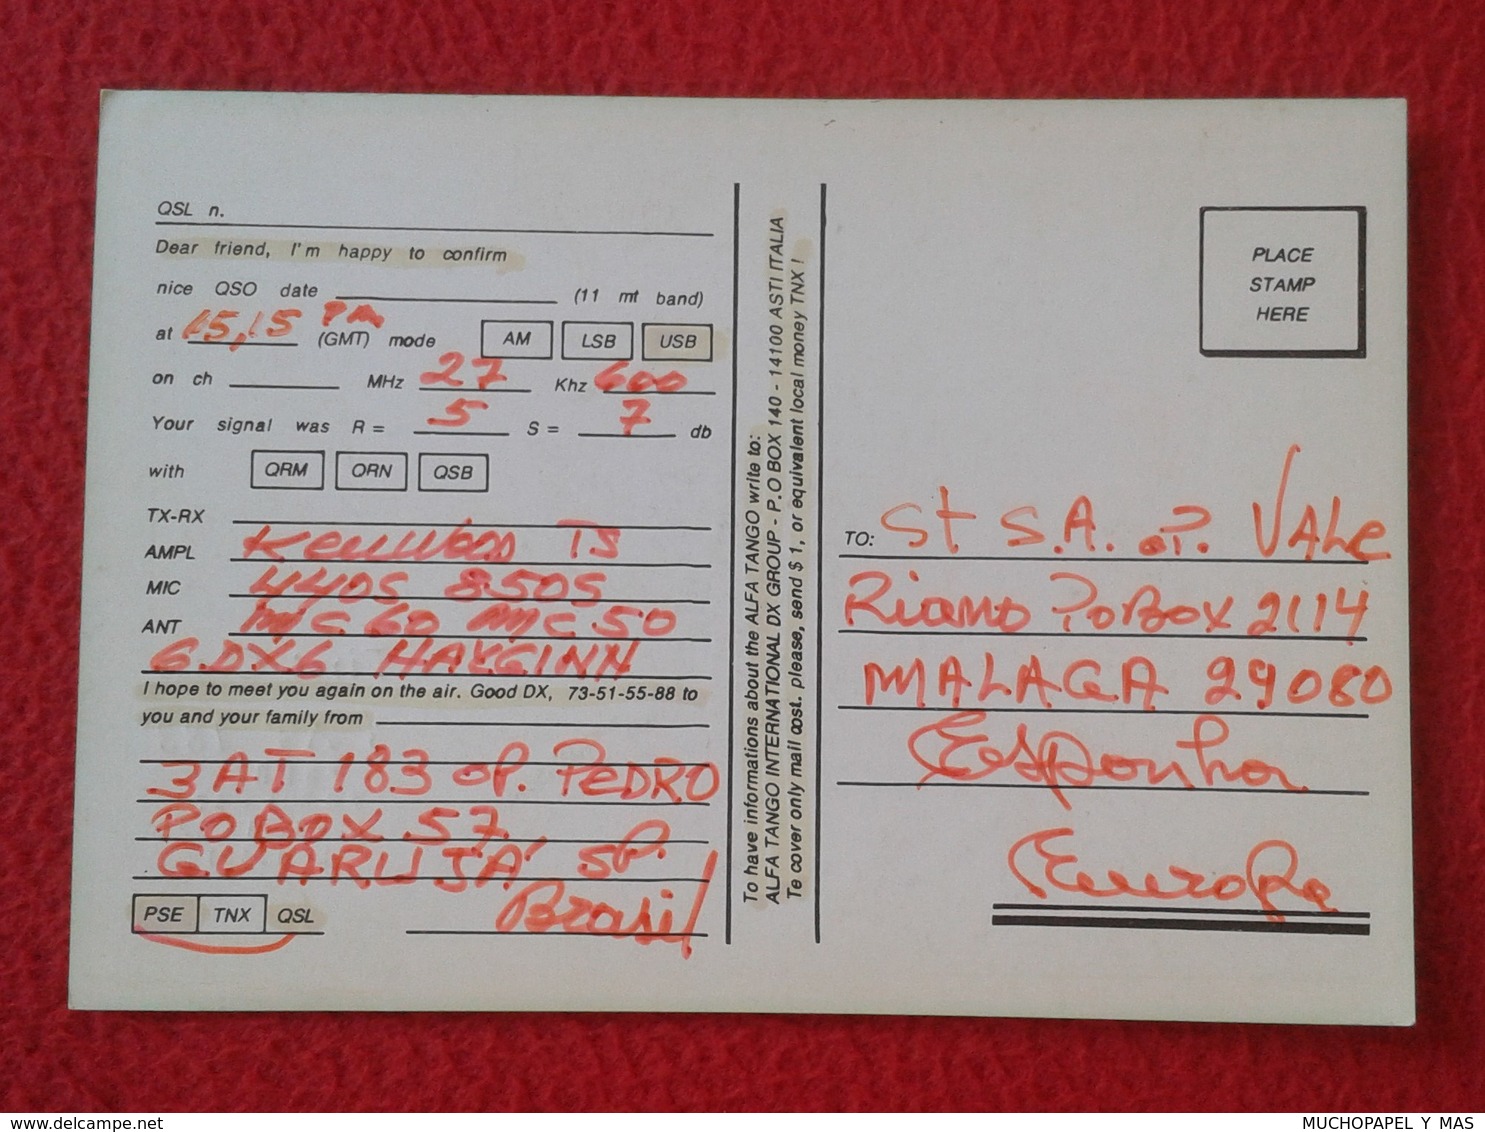 QSL n.
Dear friend, I'm happy to confirm
nice QSO date (11 mt band)
at 15,15 PM (GMT) mode AM LSB USB
on ch MHz 27 Khz 600
Your signal was R = 5 S = 7 db
with QRM QRN QSB
TX-RX
AMPL Kenwood TS
MIC 440S 850S
ANT MC 60 MC 50
I hope to meet you again on the air. Good DX, 73-51-55-88 to
you and your family from
3 AT 183 op. PEDRO
PO BOX 57
GUARUJA' SP.
Brasil
PSE TNX QSL
To have informations about the ALFA TANGO write to:
ALFA TANGO INTERNATIONAL DX GROUP - P.O BOX 140 - 14100 ASTI ITALIA
Te cover only mail cost. please, send $ 1, or equivalent local money TNX !
PLACE
STAMP
HERE
TO: St S.A. oP. VALe
Riamo PoBox 2114
MALAGA 29080
Espanha
Europa
MUCHOPAPEL Y MAS